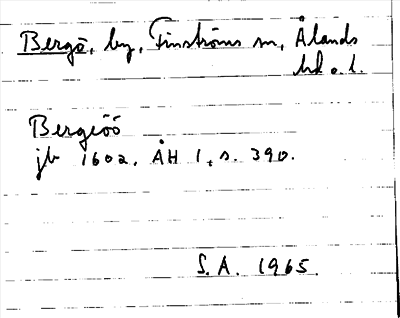 Bergö, by, Finströms sn, Ålands
hd o. l.
Bergeöö
jb 1602. ÅH 1, s. 390.
S. A. 1965.